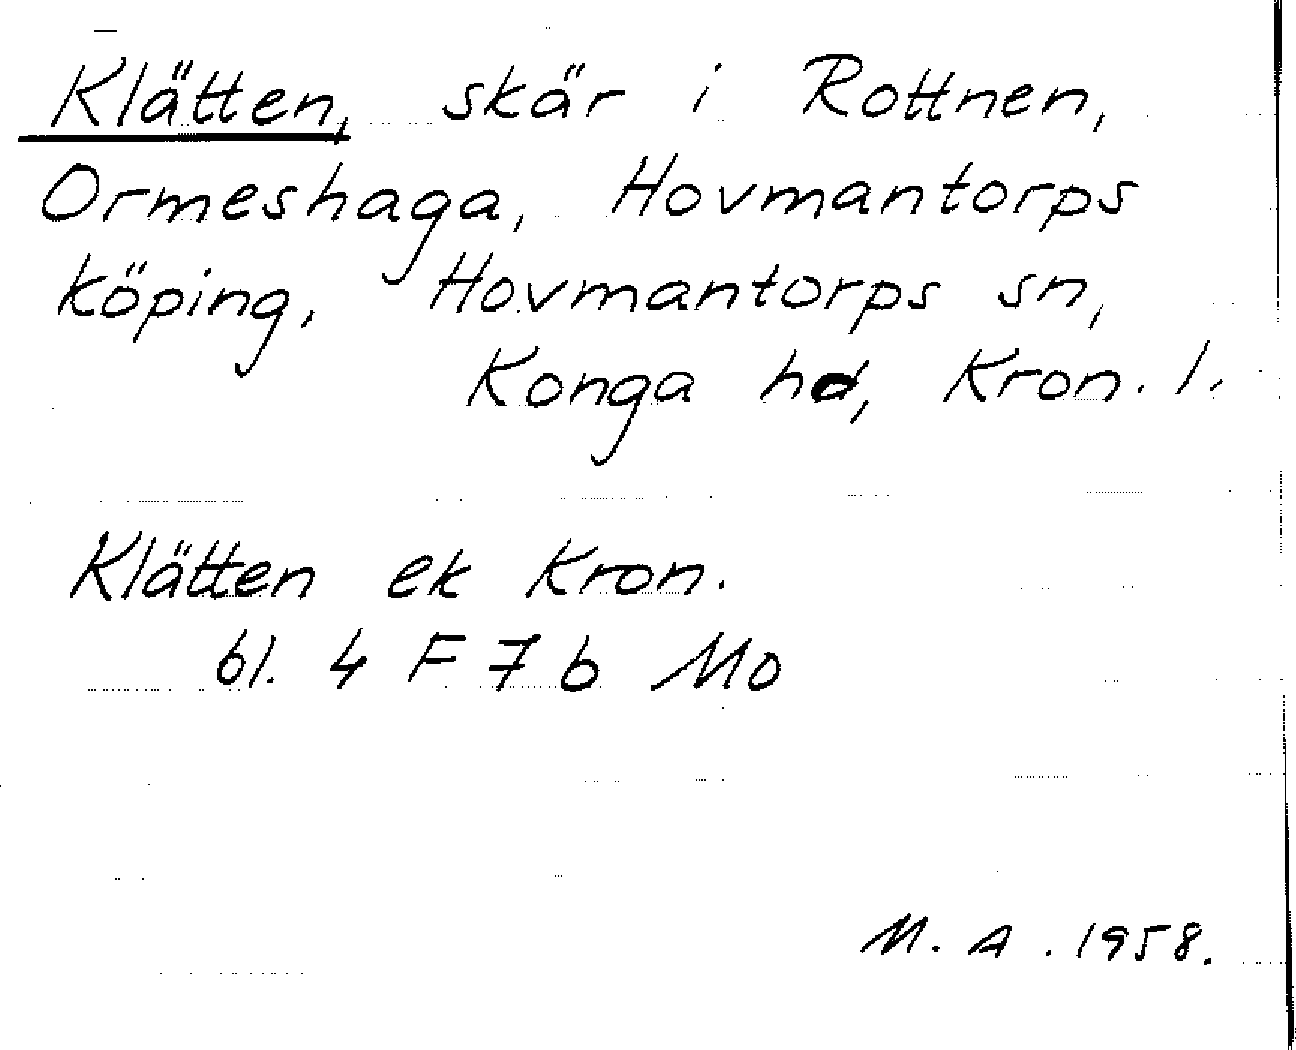 Klätten, skär i Rottnen,
Ormeshaga, Hovmantorps
köping, Hovmantorps sn,
Konga hd, Kron. l.
Klätten ek Kron.
bl. 4 F 7 b Mo
M. A. 1958.